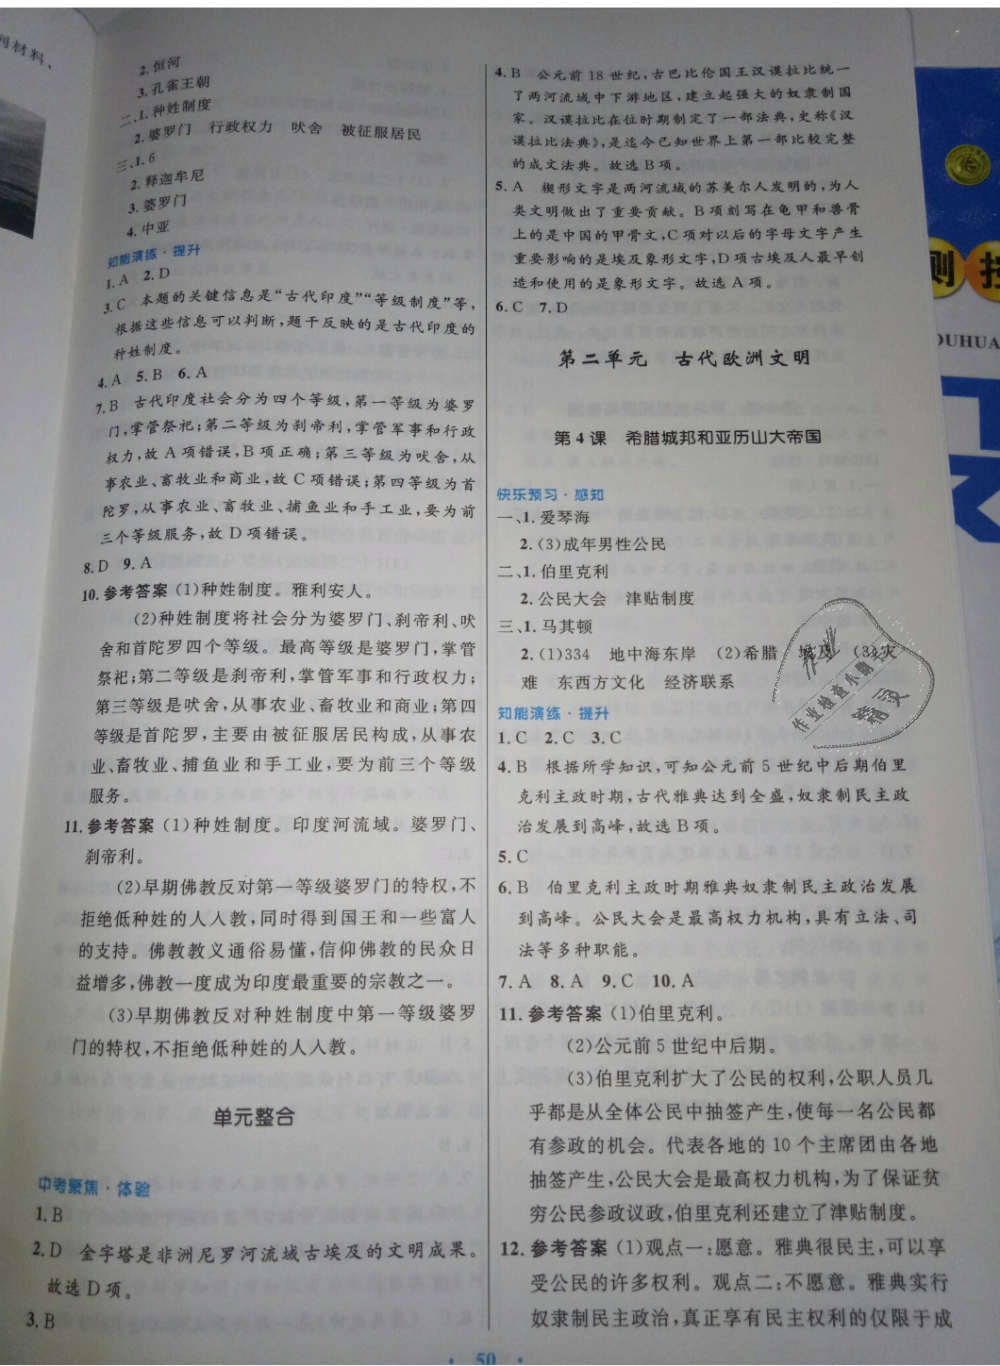 列材料、
2.恒河
3.孔雀王朝
二、1.种姓制度
2.婆罗门 行政权力 吠舍 被征服居民
三、1.6
2.释迦牟尼
3.婆罗门
4.中亚
知能演练·提升
1.A 2.D
3.C 本题的关键信息是“古代印度”“等级制度”等,
根据这些信息可以判断,题干反映的是古代印度的
种姓制度。
4.A 5.B 6.A
7.B 古代印度社会分为四个等级,第一等级为婆罗
门,掌管祭祀;第二等级为刹帝利,掌管军事和行政
权力;故A项错误,B项正确;第三等级为吠舍,从
事农业、畜牧业和商业,故C项错误;第四等级为首
陀罗,从事农业、畜牧业、捕鱼业和手工业,要为前
三个等级服务,故D项错误。
8.D 9.A
10.参考答案 (1)种姓制度。雅利安人。
(2)种姓制度将社会分为婆罗门、刹帝利、吠
舍和首陀罗四个等级。最高等级是婆罗门,掌管
祭祀;第二等级是刹帝利,掌管军事和行政权力;
第三等级是吠舍,从事农业、畜牧业和商业;第四
等级是首陀罗,主要由被征服居民构成,从事农
业、畜牧业、捕鱼业和手工业,要为前三个等级
服务。
11.参考答案 (1)种姓制度。印度河流域。婆罗门、
刹帝利。
(2)早期佛教反对第一等级婆罗门的特权,不
拒绝低种姓的人入教,同时得到国王和一些富人
的支持。佛教教义通俗易懂,信仰佛教的民众日
益增多,佛教一度成为印度最重要的宗教之一。
(3)早期佛教反对种姓制度中第一等级婆罗
门的特权,不拒绝低种姓的人入教。
单元整合
中考聚焦·体验
1.B
2.D 金字塔是非洲尼罗河流域古埃及的文明成果。
故选D项。
3.B
4.B 公元前18世纪,古巴比伦国王汉谟拉比统一
了两河流域中下游地区,建立起强大的奴隶制国
家。汉谟拉比在位时期制定了一部法典,史称《汉
谟拉比法典》,是迄今已知世界上第一部比较完整
的成文法典。故选B项。
5.A 楔形文字是两河流域的苏美尔人发明的,为人
类文明做出了重要贡献。B项刻写在龟甲和兽骨
上的是中国的甲骨文,C项对以后的字母文字产生
重要影响的是埃及象形文字,D项古埃及人最早创
造和使用的是象形文字。故选A项。
6.C 7.D
第二单元 古代欧洲文明
第4课 希腊城邦和亚历山大帝国
快乐预习·感知
一、1.爱琴海
2.(3)成年男性公民
二、1.伯里克利
2.公民大会 津贴制度
三、1.马其顿
2.(1)334 地中海东岸 (2)希腊 埃及 (3)灾
难 东西方文化 经济联系
知能演练·提升
1.C 2.C 3.C
4.B 根据所学知识,可知公元前5世纪中后期伯里
克利主政时期,古代雅典达到全盛,奴隶制民主政
治发展到高峰,故选B项。
5.C
6.B 伯里克利主政时期雅典奴隶制民主政治发展
到高峰。公民大会是最高权力机构,具有立法、司
法等多种职能。
7.A 8.A 9.C 10.A
11.参考答案 (1)伯里克利。
(2)公元前5世纪中后期。
(3)伯里克利扩大了公民的权利,公职人员几
乎都是从全体公民中抽签产生,使每一名公民都
有参政的机会。代表各地的10个主席团由各地
抽签产生,公民大会是最高权力机构,为了保证贫
穷公民参政议政,伯里克利还建立了津贴制度。
12.参考答案 (1)观点一:愿意。雅典很民主,可以享
受公民的许多权利。观点二:不愿意。雅典实行
奴隶制民主政治,真正享有民主权利的仅限于成
· 50 ·
作业
作业检查小助手
精灵
测控
OUHUA